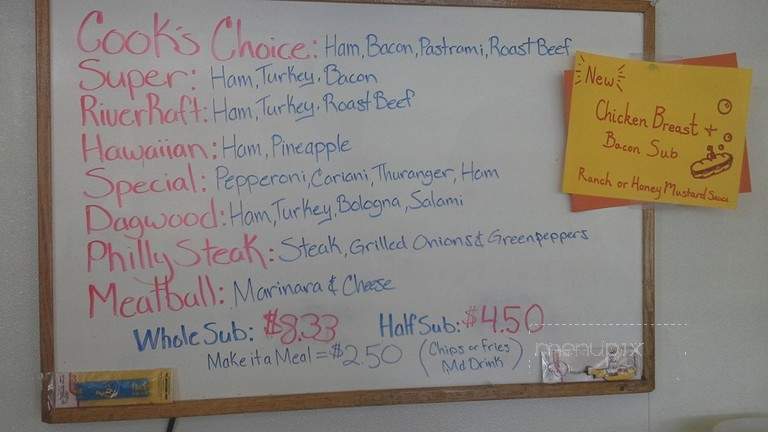 Cook's Choice: Ham, Bacon, Pastrami, Roast Beef
Super: Ham, Turkey, Bacon
River Raft: Ham, Turkey, Roast Beef
Hawaiian: Ham, Pineapple
Special: Pepperoni, Coriani, Thuranger, Ham
Dagwood: Ham, Turkey, Bologna, Salami
Philly Steak: Steak, Grilled Onions & Greenpeppers
Meatball: Marinara & Cheese
Whole Sub: $8.33 Half Sub: $4.50
Make it a Meal = $2.50 (Chips or Fries
Md Drink)
New
Chicken Breast +
Bacon Sub
Ranch or Honey Mustard Sauce
menupix